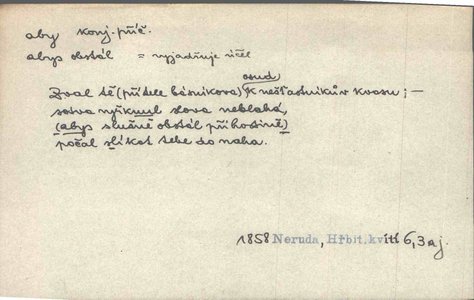 aby konj. příč.
abys obstál = vyjadřuje účel
osud
Zval tě (příteli básníkova) k nešťastníkův kvasu; —
sotva vyřknul slova neblahá,
(abys slušně obstál při hostině)
počal slíkat tebe do naha.
1858 Neruda, Hřbit. kvítí 6,3 aj.